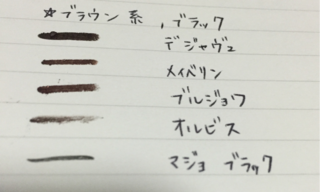 ☆ブラウン系,ブラック
デジャヴュ
メイベリン
ブルジョワ
オルビス
マジョ ブラック